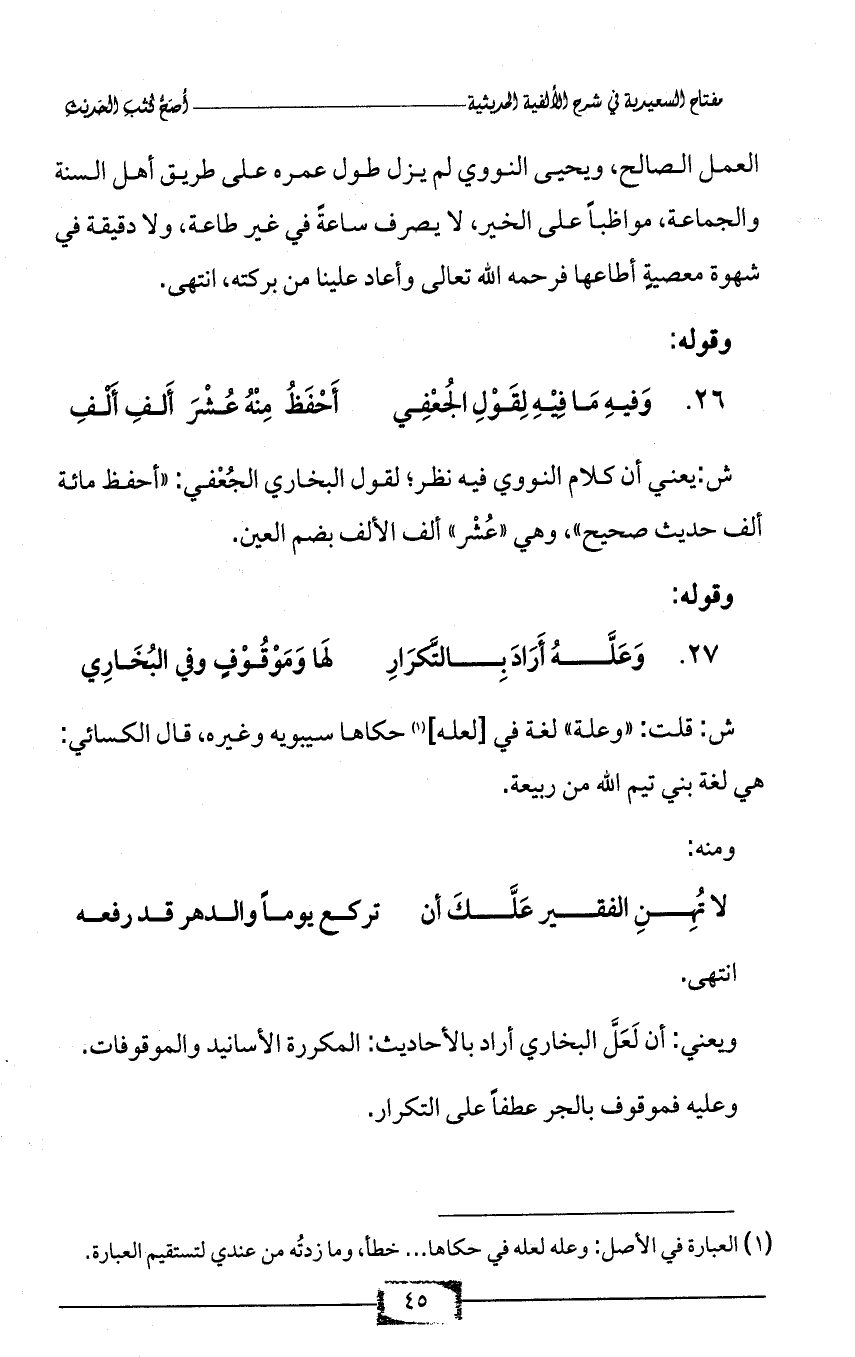 مفتاح السعيدية في شرح الألفية الحديثية ـــــــــ أصح كتب الحديث
العمل الصالح، ويحيى النووي لم يزل طول عمره على طريق أهل السنة
والجماعة، مواظباً على الخير، لا يصرف ساعةً في غير طاعة، ولا دقيقة في
شهوة معصيةٍ أطاعها فرحمه الله تعالى وأعاد علينا من بركته، انتهى.
وقوله:
٢٦. وَفيهِ مَا فِيْهِ لِقَوْلِ الجُعْفِي أَحْفَظُ مِنْهُ عُشْرَ أَلفِ أَلْفِ
ش:يعني أن كلام النووي فيه نظر؛ لقول البخاري الجُعْفي: «أحفظ مائة
ألف حديث صحيح»، وهي «عُشْر» ألف الألف بضم العين.
وقوله:
٢٧. وَعَلَّهُ أَرَادَ بِالتَّكرَارِ لهَا وَمَوْقُوْفٍ وفي البُخَارِي
ش: قلت: «وعلة» لغة في [لعله](١) حكاها سيبويه وغيره، قال الكسائي:
هي لغة بني تيم الله من ربيعة.
ومنه:
لا تُهِنِ الفقير عَلَّكَ أن تركع يوماً والدهر قد رفعه
انتهى.
ويعني: أن لَعَلَّ البخاري أراد بالأحاديث: المكررة الأسانيد والموقوفات.
وعليه فموقوف بالجر عطفاً على التكرار.
(١) العبارة في الأصل: وعله لعله في حكاها... خطأ، وما زدتُه من عندي لتستقيم العبارة.
٤٥